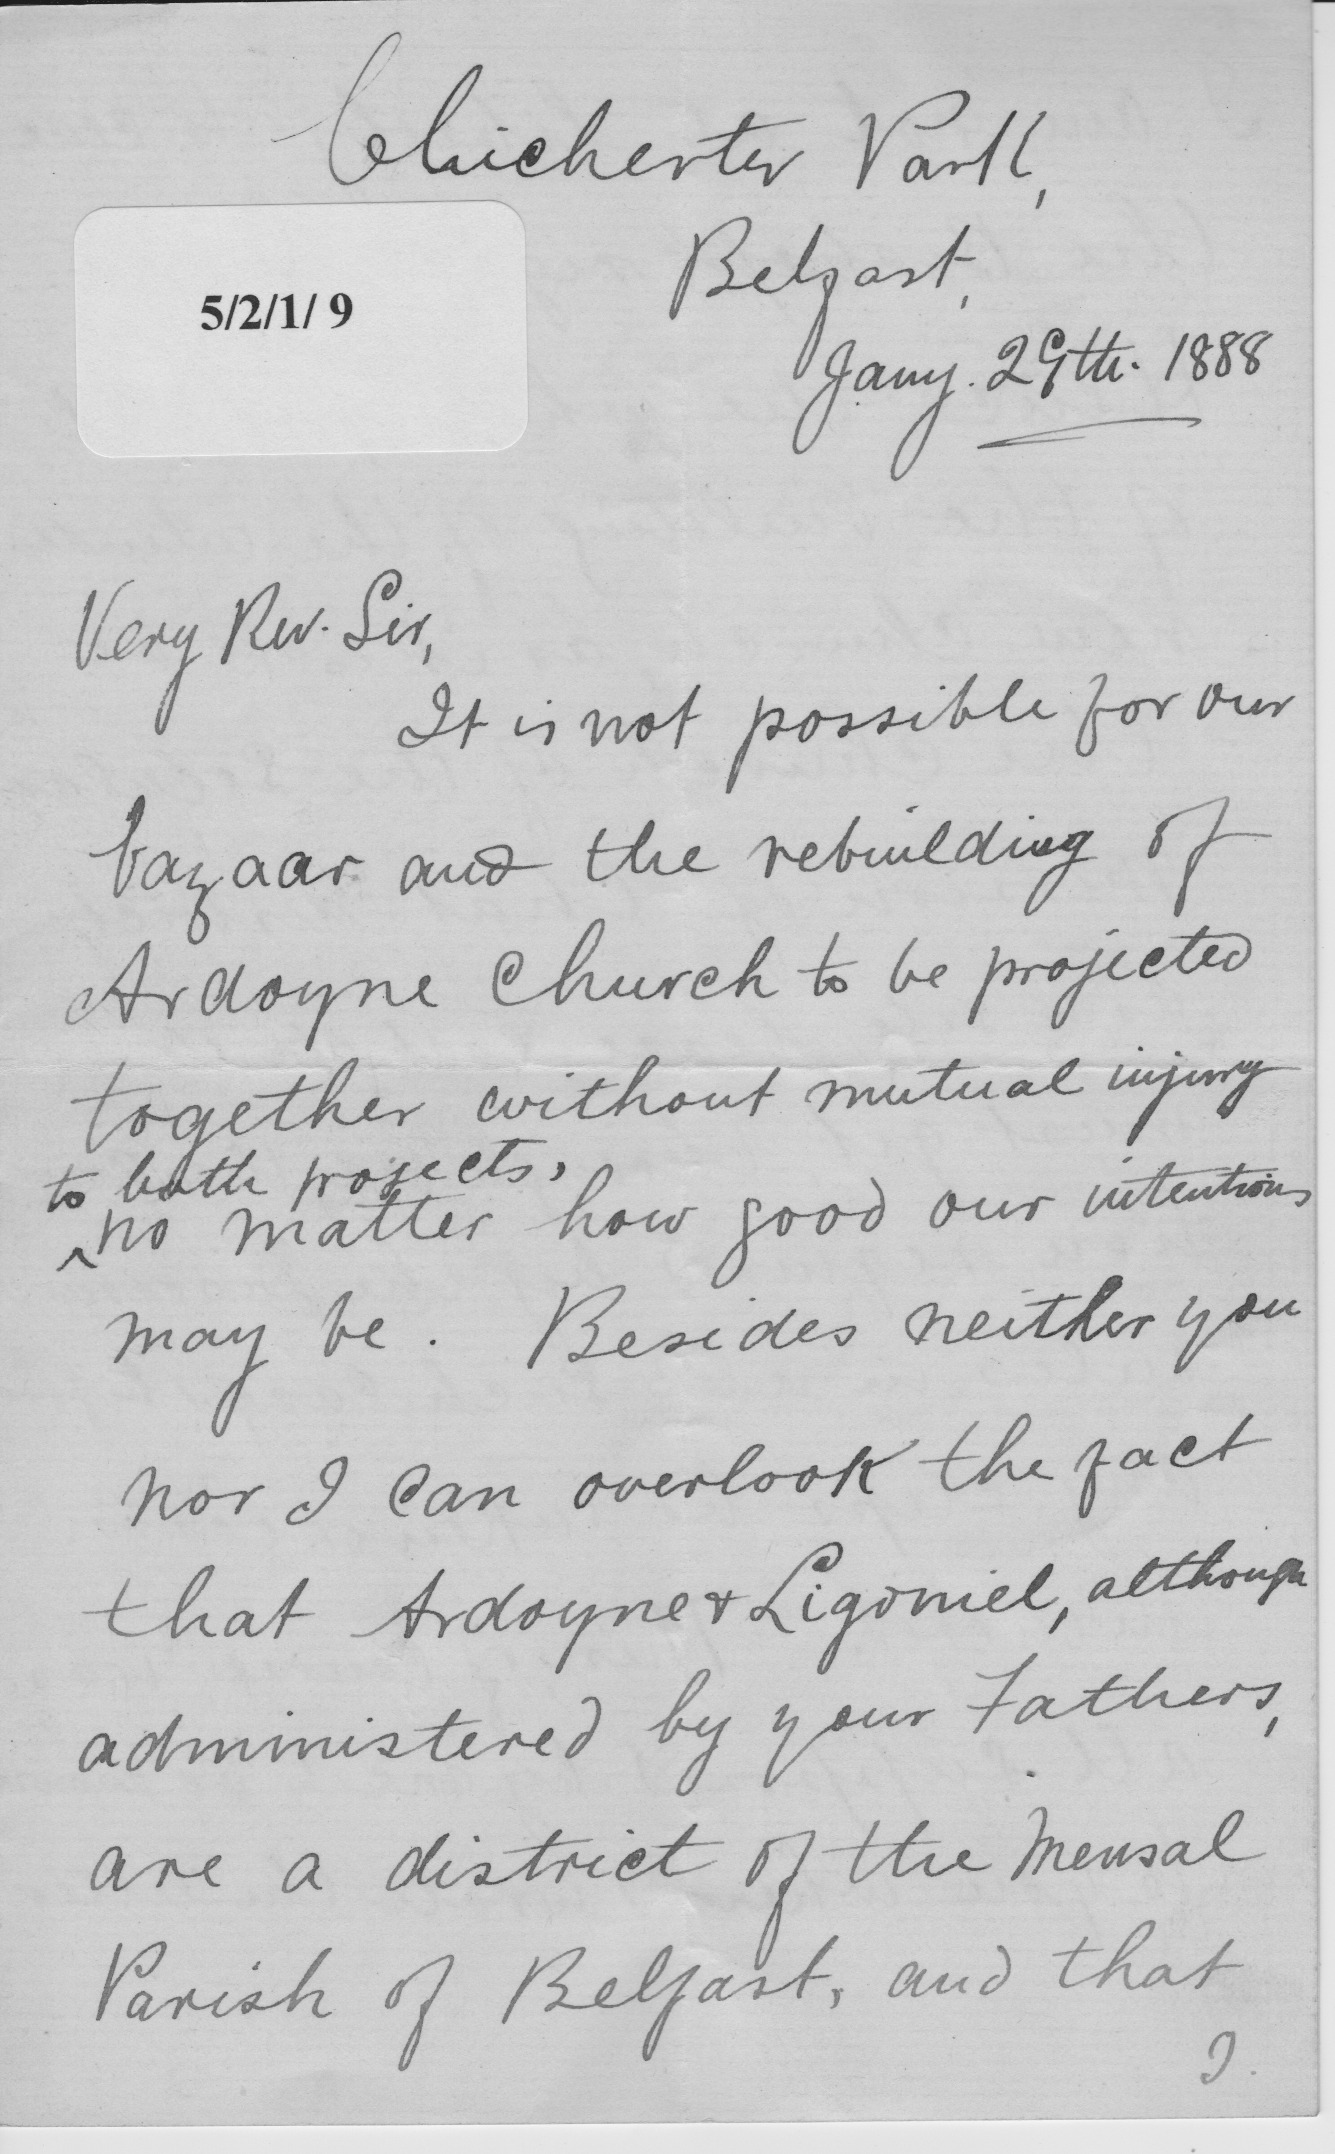 Chichester Park,
Belfast,
5/2/1/ 9
Jany. 29th. 1888
Very Rev. Sir,
It is not possible for our
bazaar and the rebuilding of
Ardoyne Church to be projected
together without mutual injury
to both projects,
^no matter how good our intentions
may be. Besides neither you
nor I can overlook the fact
that Ardoyne & Ligoniel, although
administered by your Fathers,
are a district of the Mensal
Parish of Belfast, and that
I.